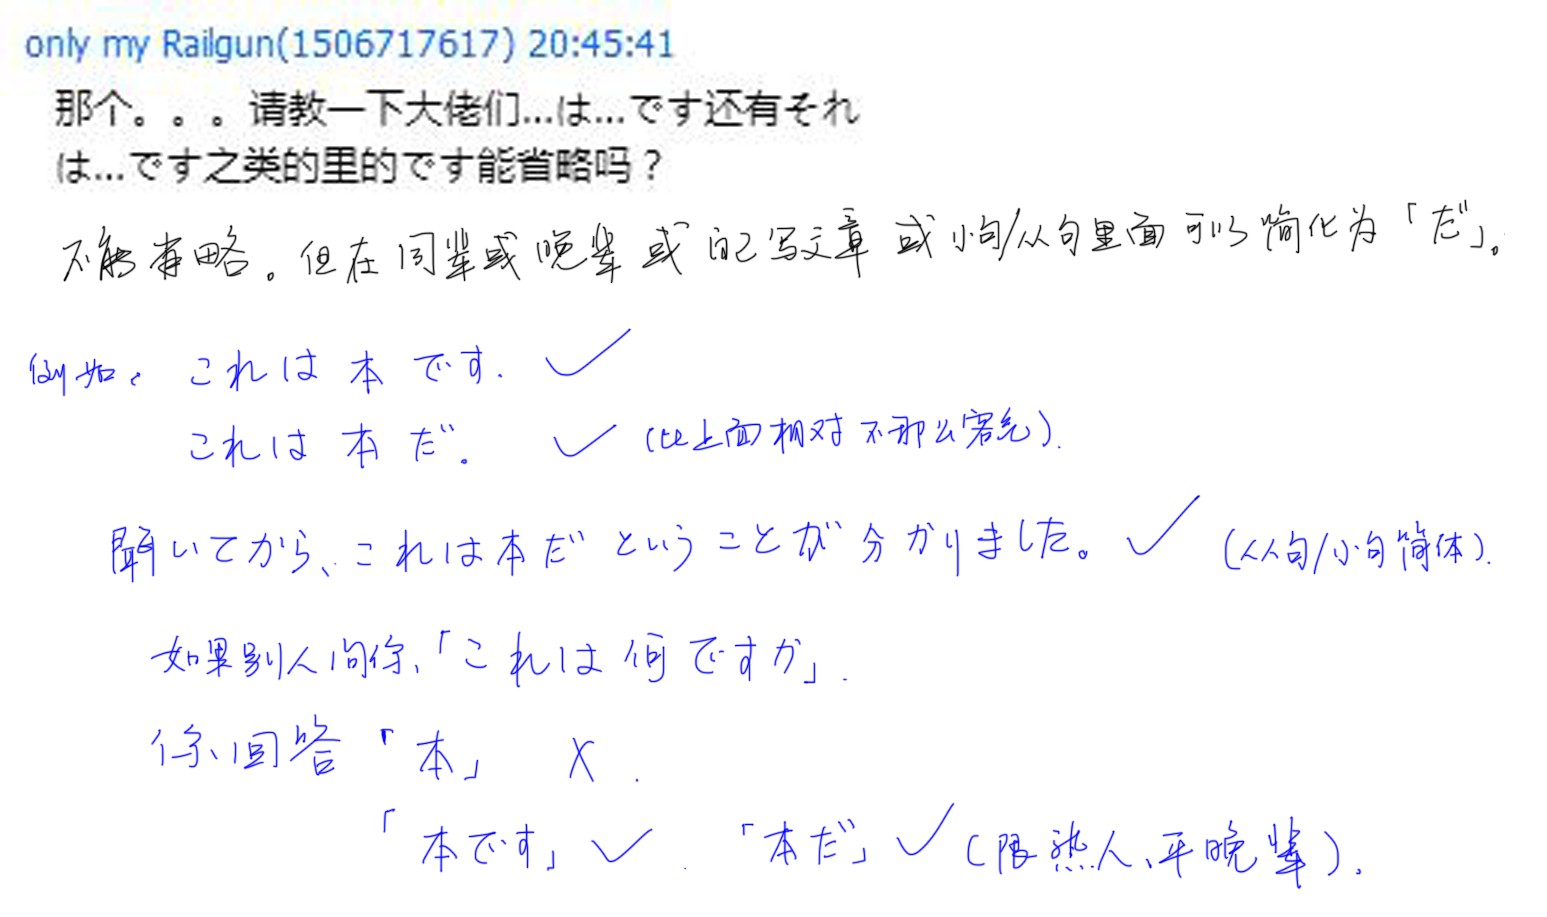 only my Railgun(1506717617) 20:45:41
那个。。。请教一下大佬们...は...です还有それ
は...です之类的里的です能省略吗？
不能省略。但在同辈或晚辈或自己写文章或小句/从句里面可以简化为「だ」。
例如：これは本です. ✓
これは本だ。 ✓ (比上面相对不那么客气).
聞いてから、これは本だということが分かりました。 ✓ (从句/小句简体).
如果别人问你、「これは何ですか」.
你回答「本」 X.
「本です」 ✓. 「本だ」 ✓ (限熟人、平晚辈).